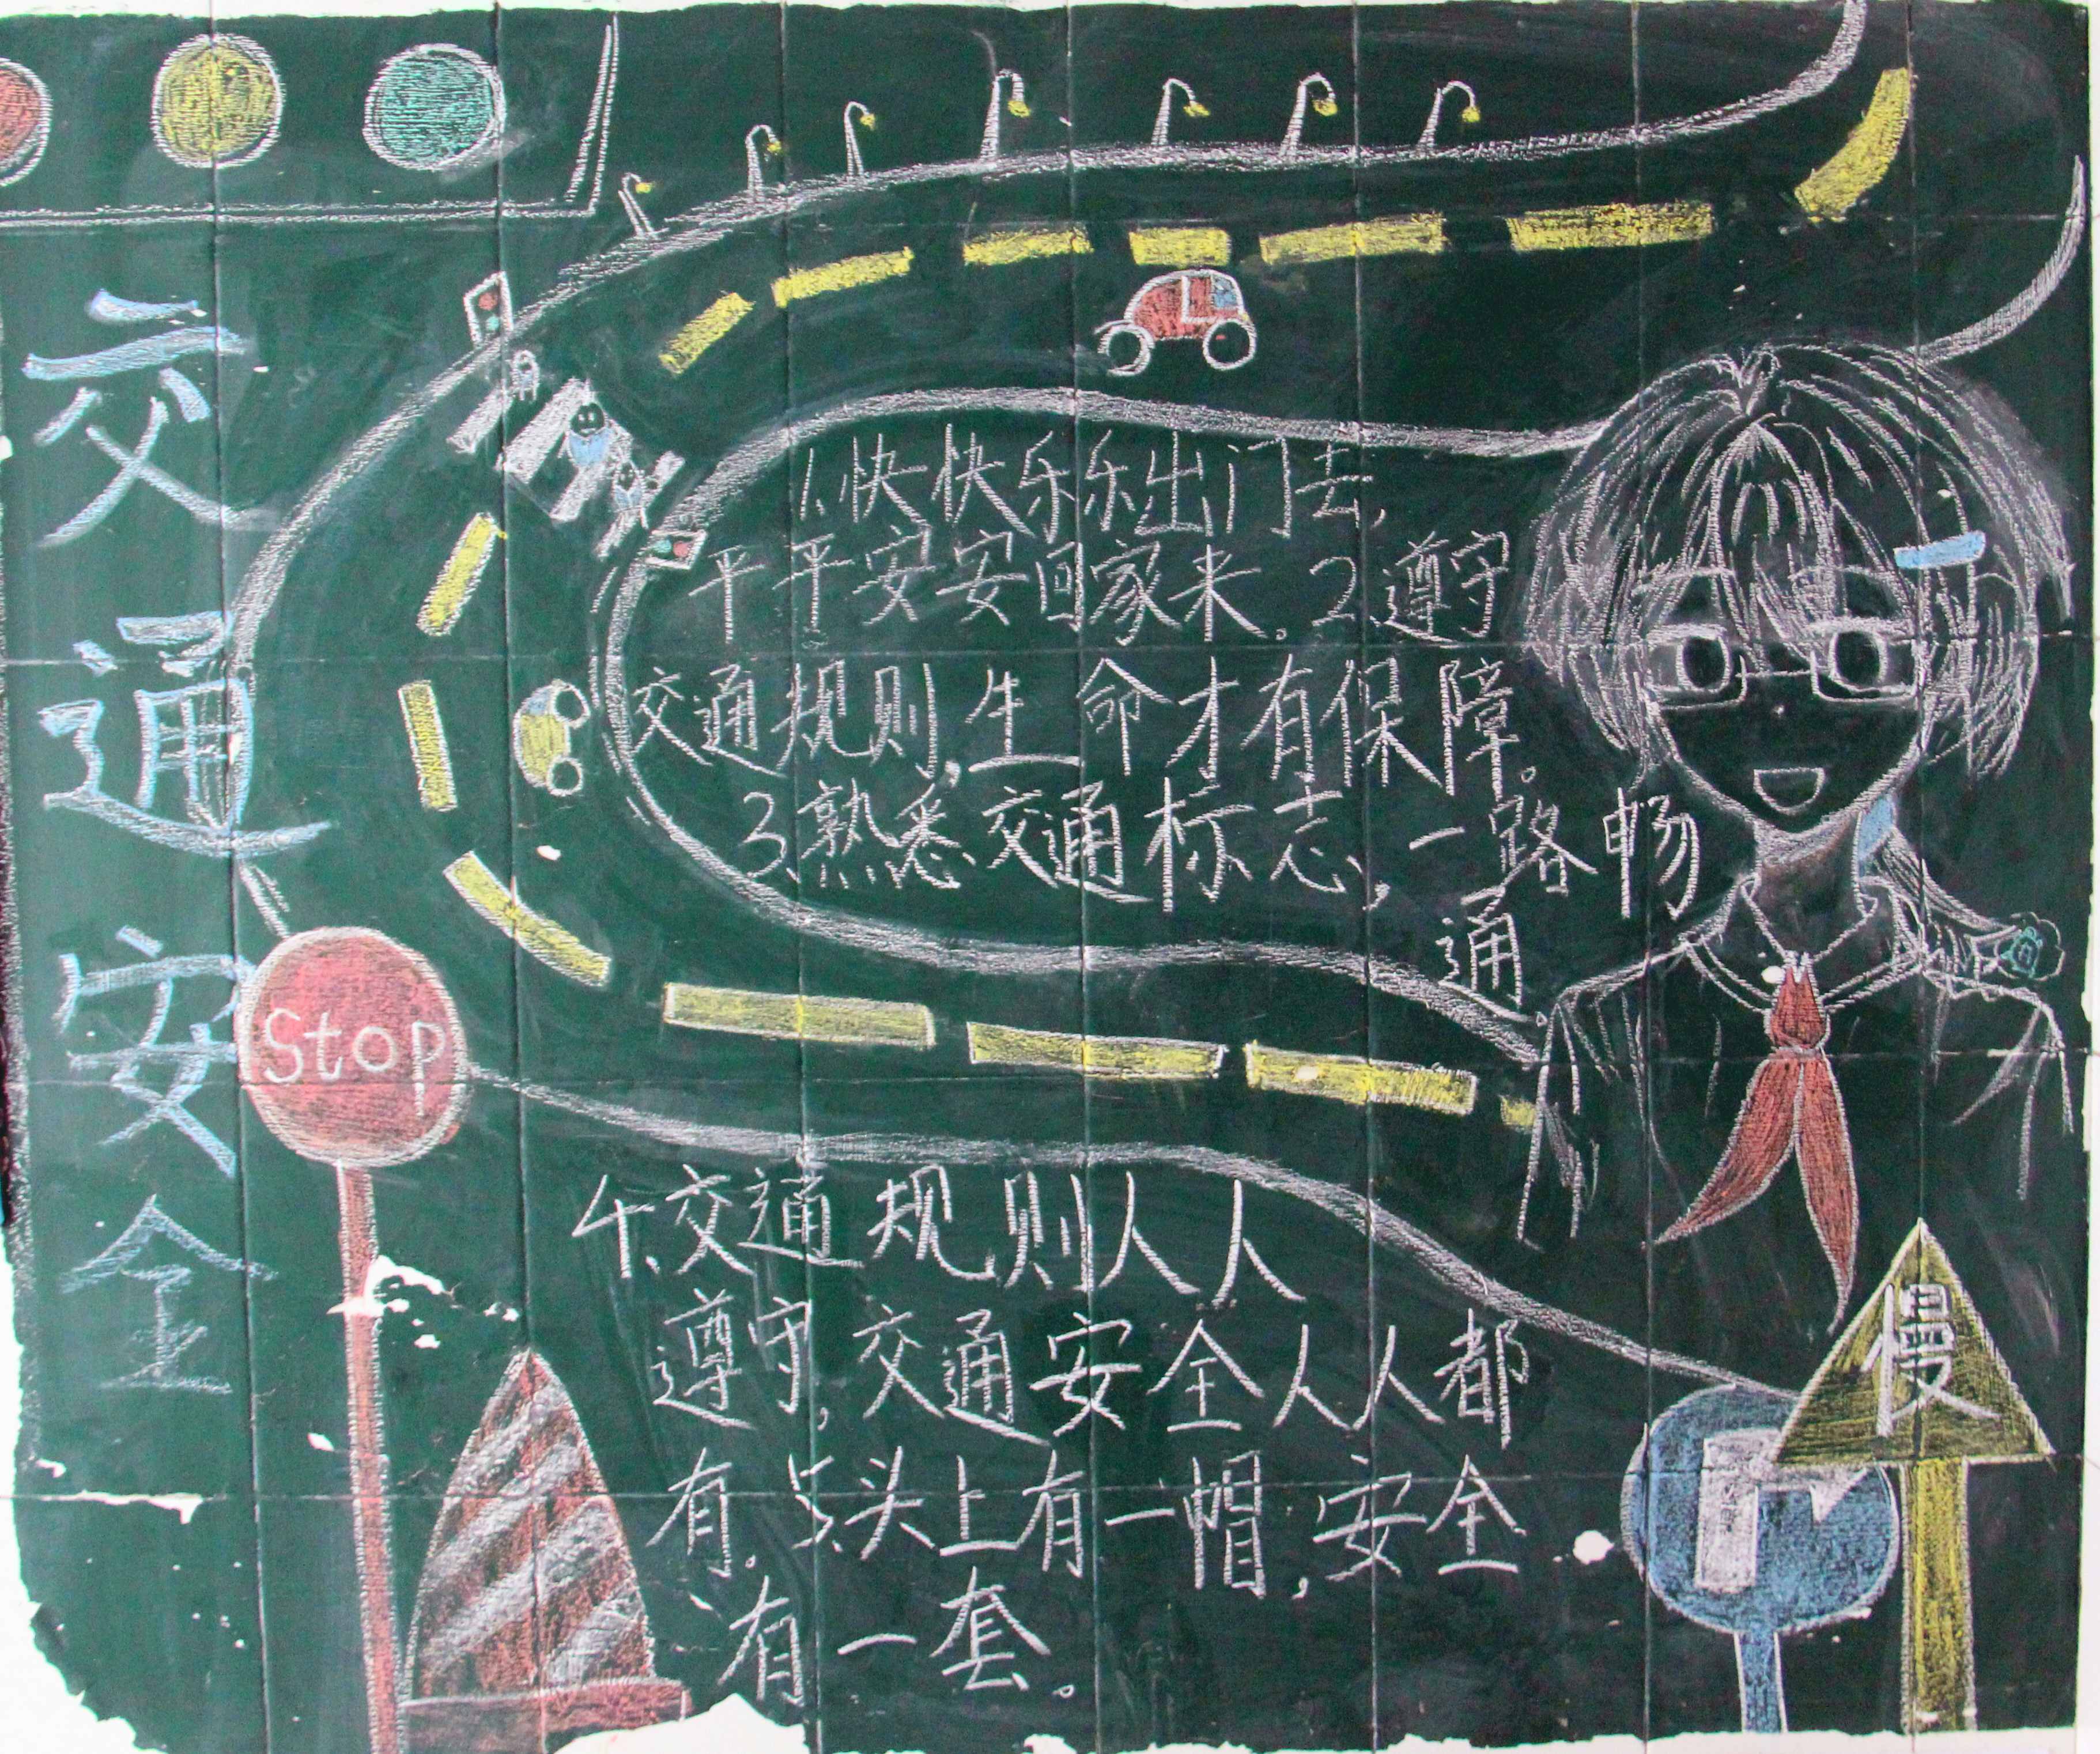 交通安全
1.快快乐乐出门去,
平平安安回家来。2.遵守
交通规则,生命才有保障。
3.熟悉交通标志,一路畅
通。
Stop
4.交通规则人人
遵守,交通安全人人都
有。5.头上有一帽,安全
有一套。
慢